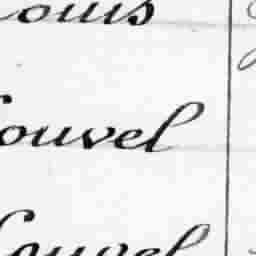 ouis
ouvel
ouvel